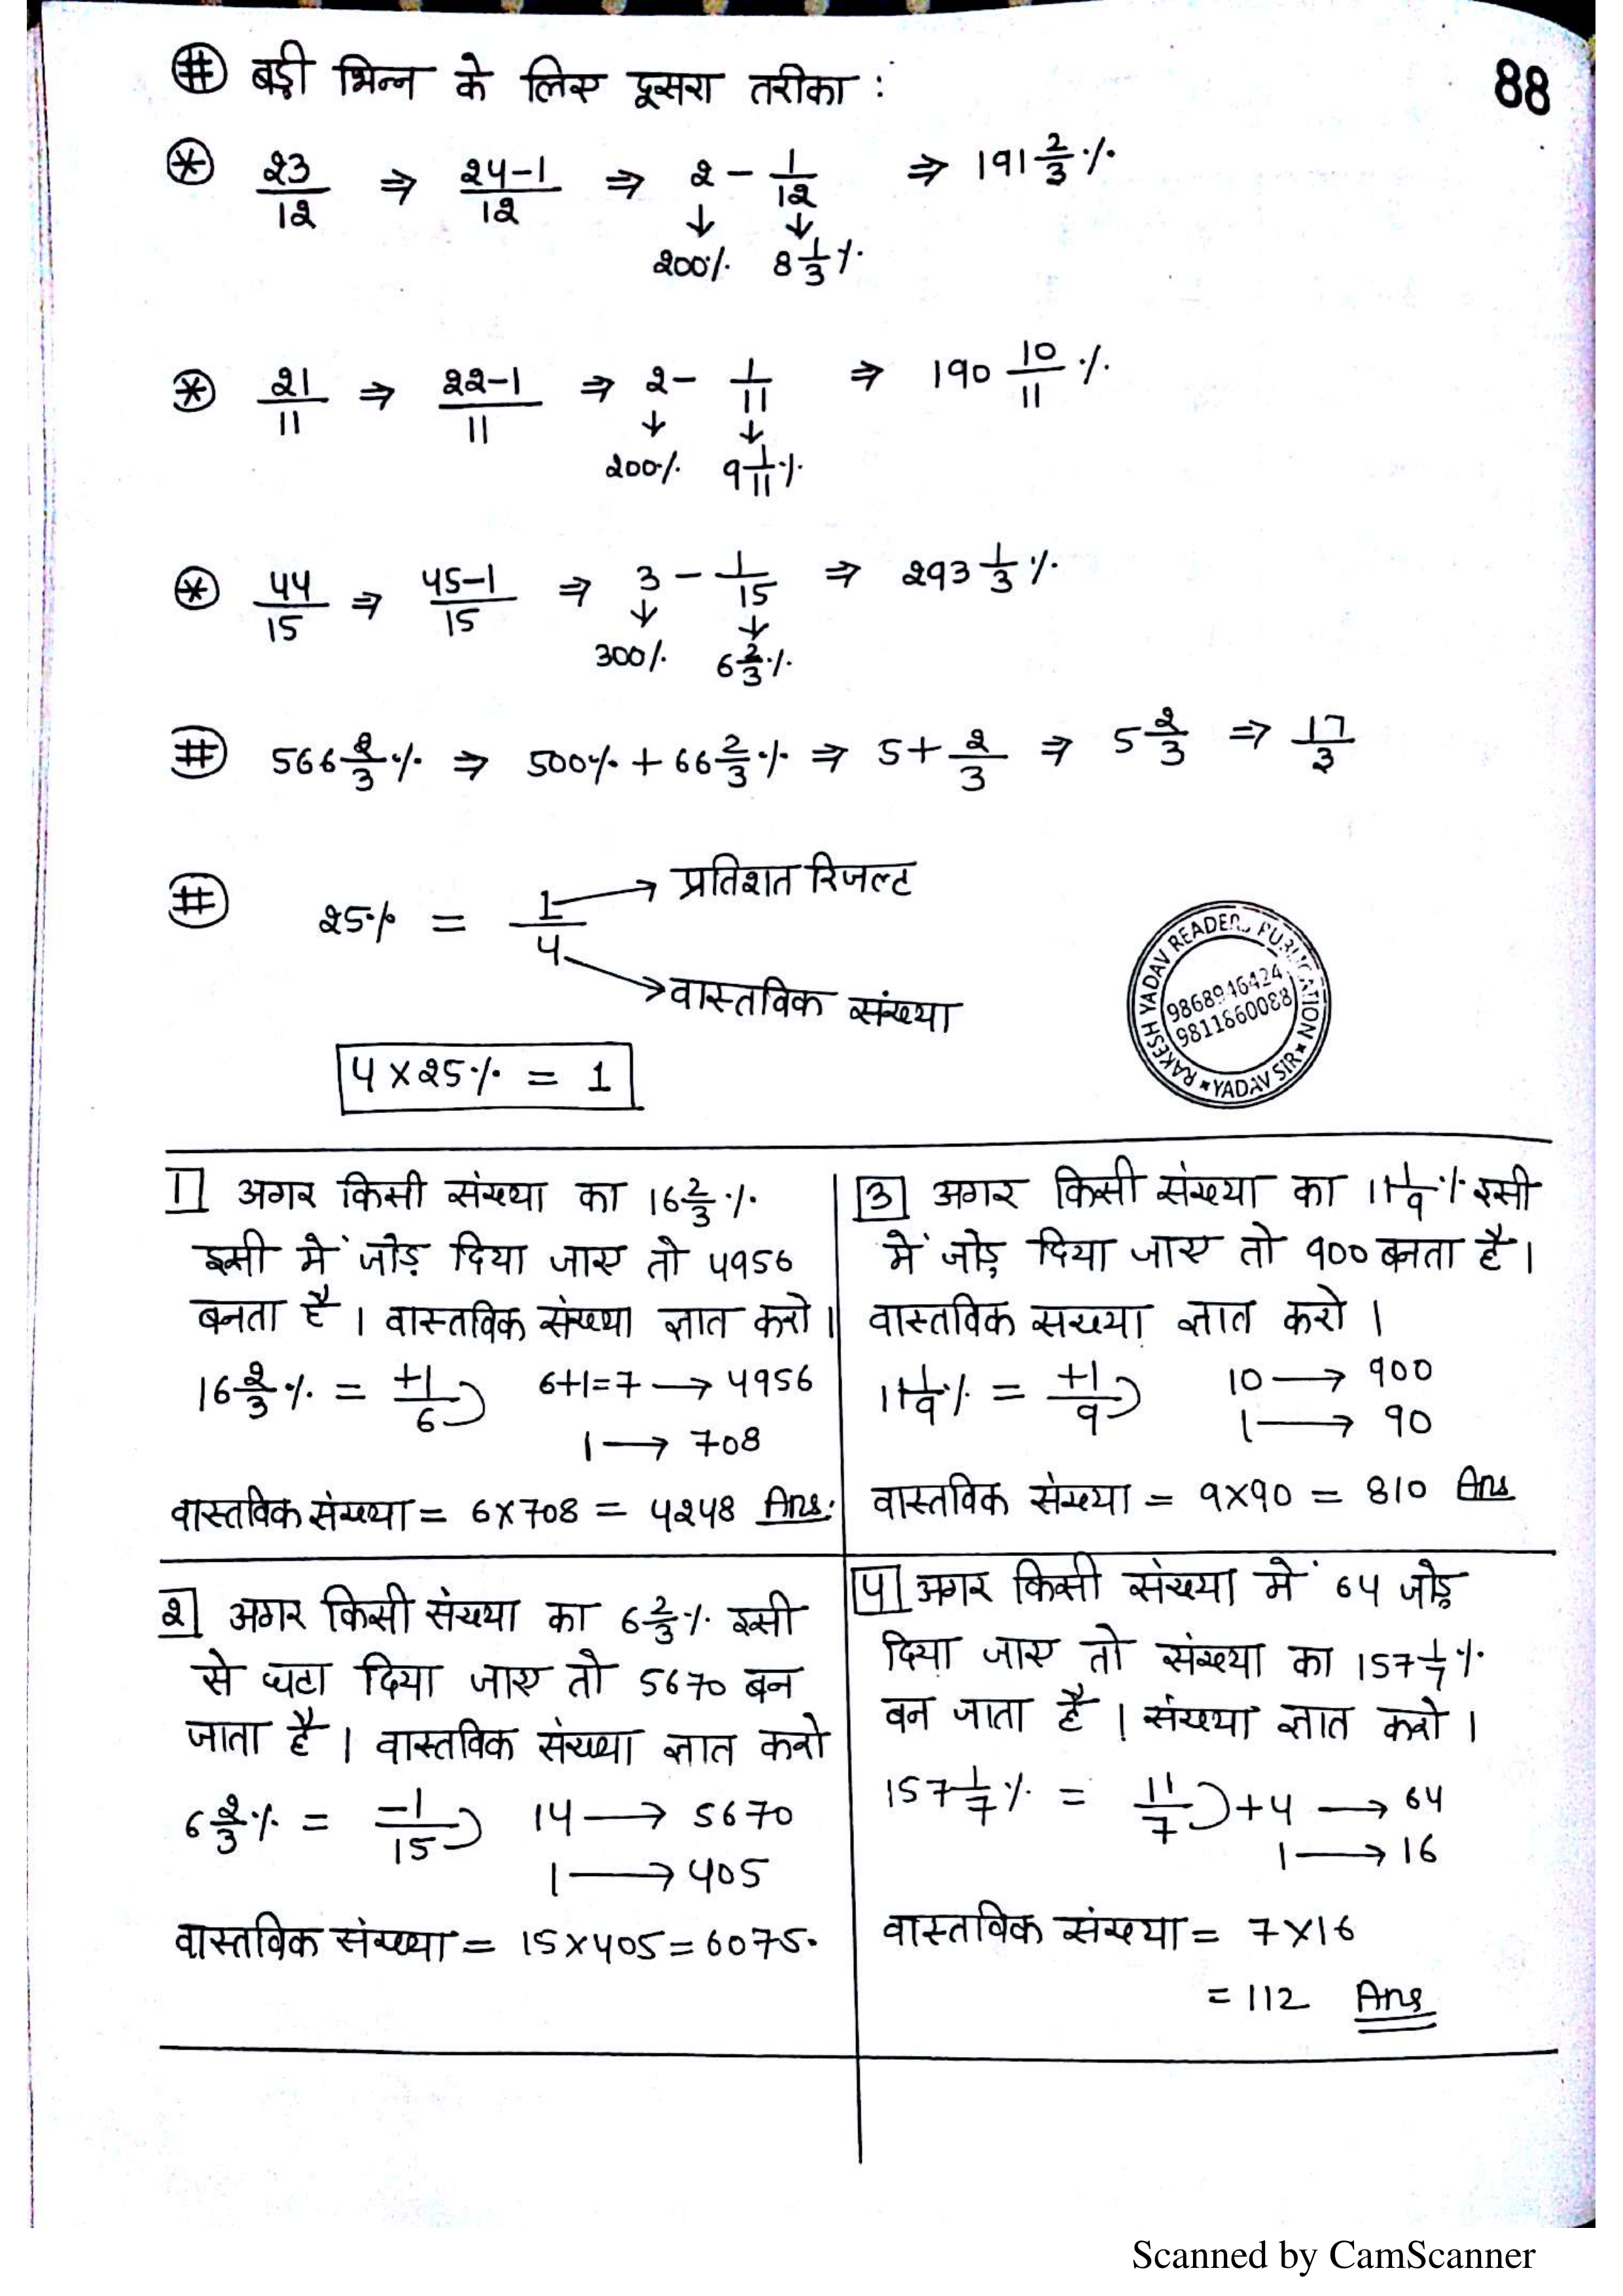 # बड़ी भिन्न के लिए दूसरा तरीका :
88
* 23/12 ⇒ 24-1/12 ⇒ 2 - 1/12 ⇒ 191 2/3 %
↓ ↓
200% 8 1/3 %
* 21/11 ⇒ 22-1/11 ⇒ 2 - 1/11 ⇒ 190 10/11 %
↓ ↓
200% 9 1/11 %
* 44/15 ⇒ 45-1/15 ⇒ 3 - 1/15 ⇒ 293 1/3 %
↓ ↓
300% 6 2/3 %
# 566 2/3 % ⇒ 500% + 66 2/3 % ⇒ 5 + 2/3 ⇒ 5 2/3 ⇒ 17/3
# 25% = 1/4
→ प्रतिशत रिजल्ट
→ वास्तविक संख्या
4 × 25% = 1
RAKESH YADAV READERS PUBLICATION
9868946424
9811860088
* YADAV SIR *
1 अगर किसी संख्या का 16 2/3 %
इसी में जोड़ दिया जाए तो 4956
बनता है । वास्तविक संख्या ज्ञात करो ।
16 2/3 % = +1/6 6+1=7 → 4956
1 → 708
वास्तविक संख्या = 6×708 = 4248 Ans.
2 अगर किसी संख्या का 6 2/3 % इसी
से घटा दिया जाए तो 5670 बन
जाता है । वास्तविक संख्या ज्ञात करो
6 2/3 % = -1/15 14 → 5670
1 → 405
वास्तविक संख्या = 15×405 = 6075.
3 अगर किसी संख्या का 11 1/9 % इसी
में जोड़ दिया जाए तो 900 बनता है ।
वास्तविक सख्या ज्ञात करो ।
11 1/9 % = +1/9 10 → 900
1 → 90
वास्तविक संख्या = 9×90 = 810 Ans
4 अगर किसी संख्या में 64 जोड़
दिया जाए तो संख्या का 157 1/7 %
बन जाता है । संख्या ज्ञात करो ।
157 1/7 % = 11/7 +4 → 64
1 → 16
वास्तविक संख्या = 7×16
= 112 Ans
Scanned by CamScanner